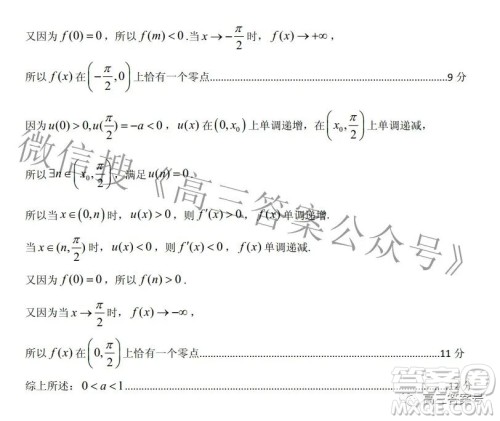 又因为 f(0)=0，所以 f(m)<0.当 x→-π/2 时，f(x)→+∞，
所以 f(x) 在 (-π/2,0) 上恰有一个零点........9 分
因为 u(0)>0,u(π/2)=-a<0，u(x) 在 (0,x₀) 上单调递增，在 (x₀,π/2) 上单调递减，
所以 ∃n∈(x₀,π/2)，满足 u(n)=0.
所以当 x∈(0,n) 时，u(x)>0，则 f′(x)>0，f(x) 单调递增.
当 x∈(n,π/2) 时，u(x)<0，则 f′(x)<0，f(x) 单调递减.
又因为 f(0)=0，所以 f(n)>0.
又因为当 x→π/2 时，f(x)→-∞，
所以 f(x) 在 (0,π/2) 上恰有一个零点........11 分
综上所述：0<a<1........12 分
微信搜《高三答案公众号》
答案圈
高三答案号
MXQE.COM